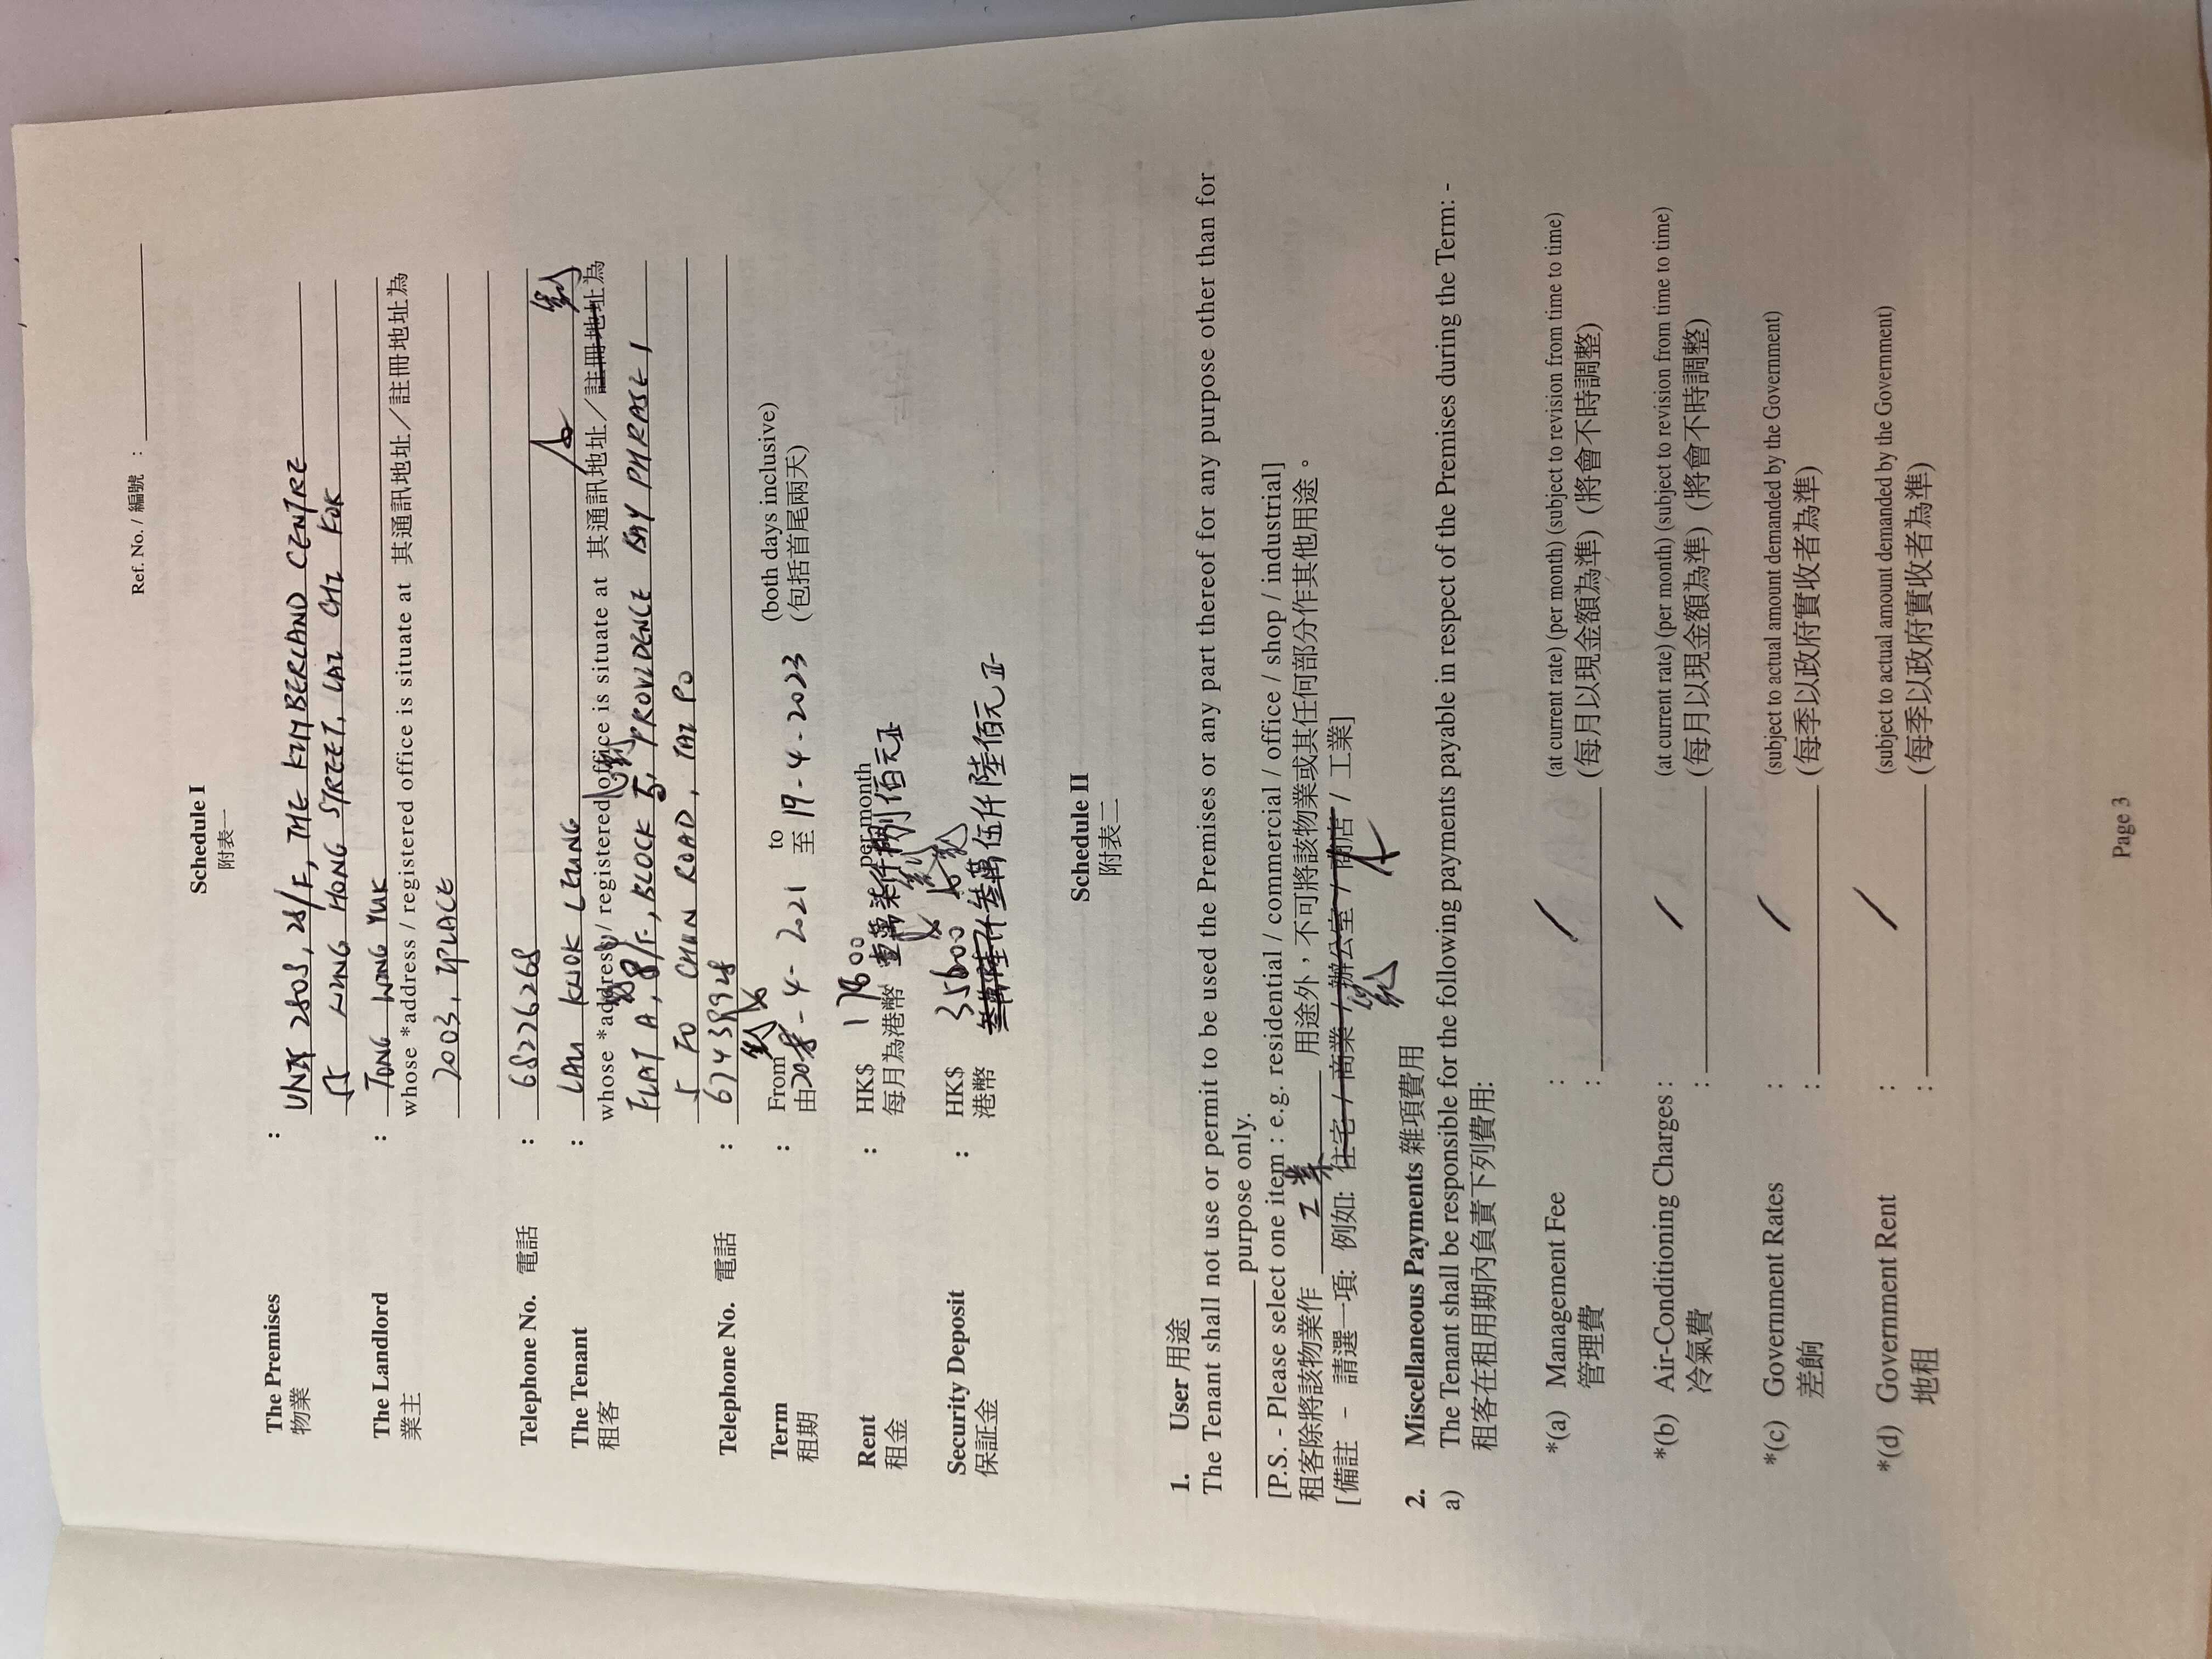 Ref. No. / 編號 :
Schedule I
附表一
The Premises : UNIT 2803, 28/F, THE KIMBERLAND CENTRE
物業 WING HONG STREET, LAI CHI KOK
The Landlord : TONG WONG YUK
業主 whose *address / registered office is situate at 其通訊地址／註冊地址為
2003, IPLACE
Telephone No. 電話 : 68226268
The Tenant : LAU KWOK LEUNG
租客 whose *address / registered office is situate at 其通訊地址／註冊地址為
FLAT A, 8/F, BLOCK 5, PROVIDENCE BAY PHRASE 1
5 FO CHUN ROAD, TAI PO
Telephone No. 電話 : 67438928
Term : From to (both days inclusive)
租期 由20-4-2021 至 19-4-2023 (包括首尾兩天)
Rent : HK$ 17800 per month
租金 每月為港幣 壹萬柒仟捌佰元正
Security Deposit : HK$ 35600
保証金 港幣 叁萬伍仟陸佰元正
Schedule II
附表二
1. User 用途
The Tenant shall not use or permit to be used the Premises or any part thereof for any purpose other than for
purpose only.
[P.S. - Please select one item : e.g. residential / commercial / office / shop / industrial]
租客除將該物業作 工業 用途外，不可將該物業或其任何部分作其他用途。
[備註 - 請選一項: 例如: 住宅 / 商業 / 辦公室 / 商店 / 工業]
2. Miscellaneous Payments 雜項費用
a) The Tenant shall be responsible for the following payments payable in respect of the Premises during the Term: -
租客在租用期內負責下列費用:
*(a) Management Fee : / (at current rate) (per month) (subject to revision from time to time)
管理費 : (每月以現金額為準) (將會不時調整)
*(b) Air-Conditioning Charges : / (at current rate) (per month) (subject to revision from time to time)
冷氣費 : (每月以現金額為準) (將會不時調整)
*(c) Government Rates : / (subject to actual amount demanded by the Government)
差餉 : (每季以政府實收者為準)
*(d) Government Rent : / (subject to actual amount demanded by the Government)
地租 : (每季以政府實收者為準)
Page 3